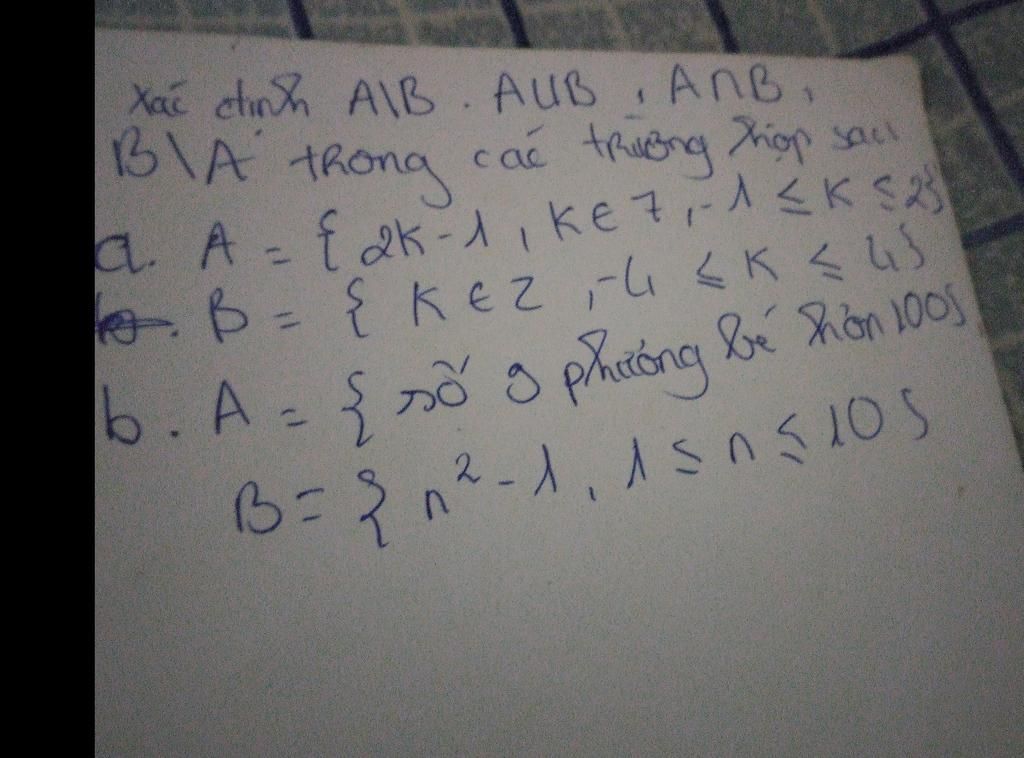 Xác định A\B . A∪B , A∩B ,
B\A trong các trường hợp sau
a. A = { 2K-1, K∈7, -1 ≤ K ≤ 2}
B = { K ∈ Z , -4 ≤ K ≤ 4}
b. A = { số 9 phương bé hơn 100}
B = { n² - 1, 1 ≤ n ≤ 10}